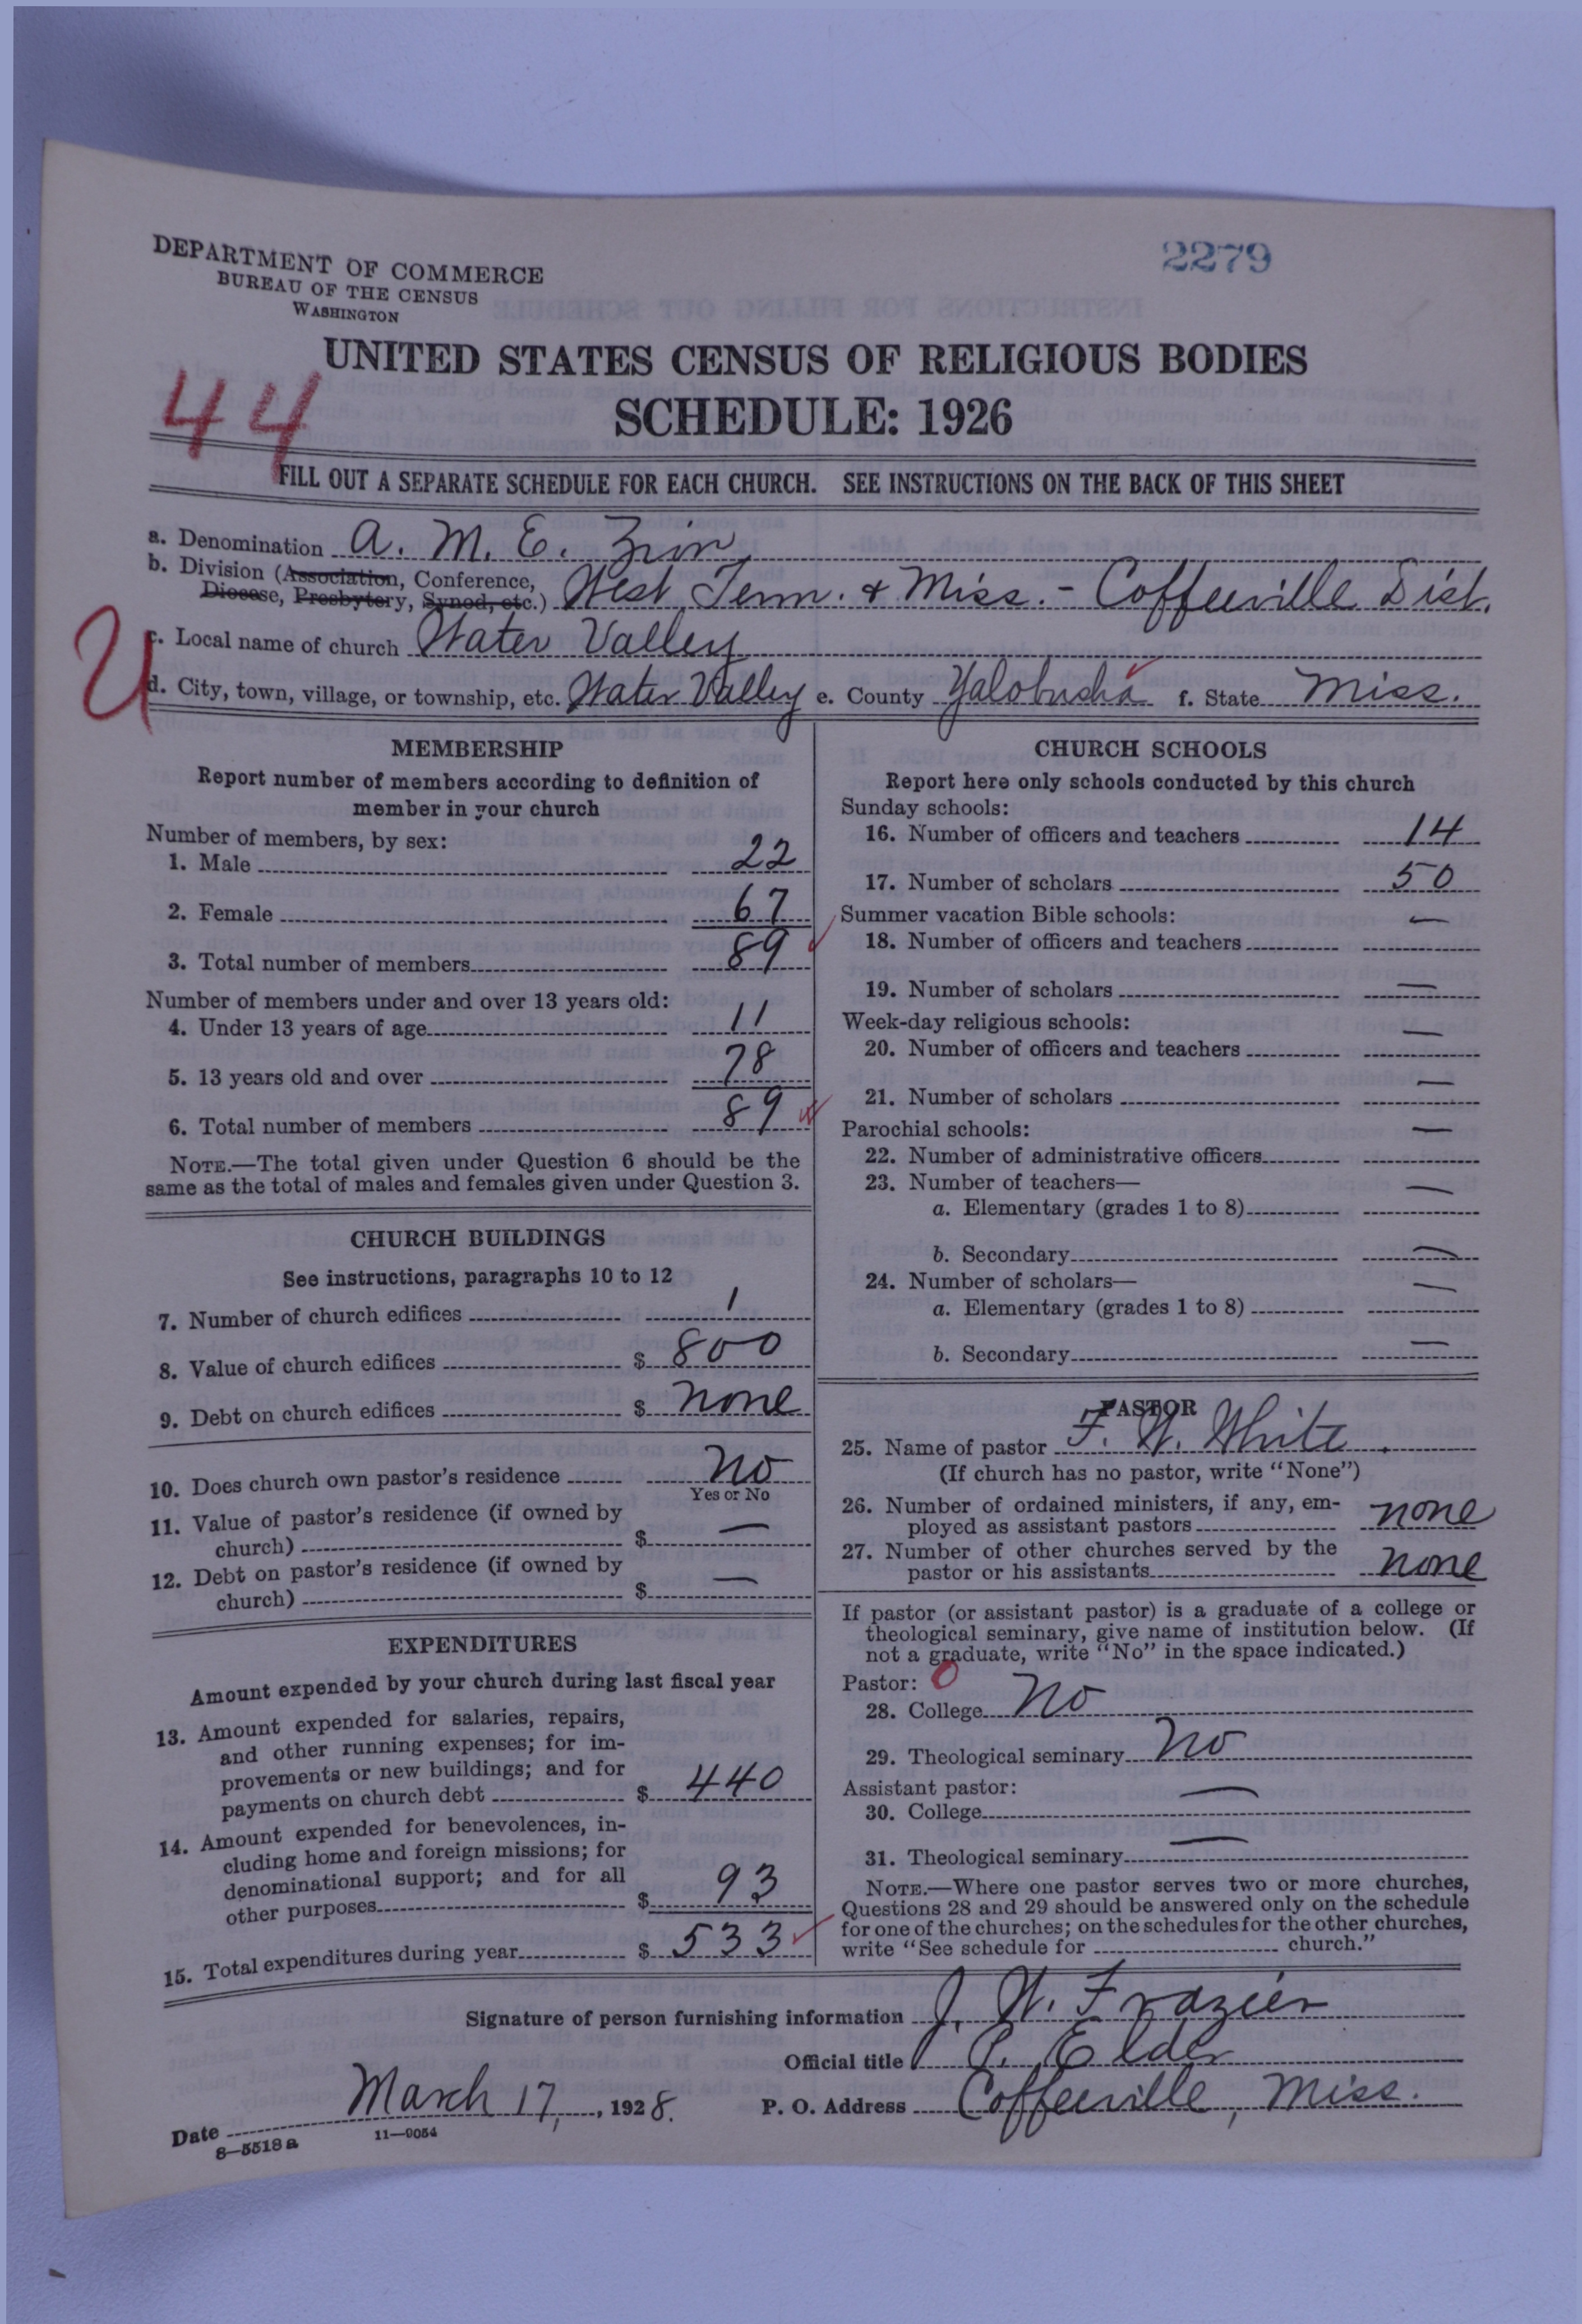 2279
DEPARTMENT OF COMMERCE
BUREAU OF THE CENSUS
WASHINGTON
UNITED STATES CENSUS OF RELIGIOUS BODIES
SCHEDULE: 1926
44
FILL OUT A SEPARATE SCHEDULE FOR EACH CHURCH. SEE INSTRUCTIONS ON THE BACK OF THIS SHEET
a. Denomination A. M. E. Zion
b. Division (Association, Conference,
Diocese, Presbytery, Synod, etc.) West Tenn. & Miss. - Coffeeville Dist.
U
c. Local name of church Water Valley
d. City, town, village, or township, etc. Water Valley e. County Yalobusha f. State Miss.
MEMBERSHIP
Report number of members according to definition of
member in your church
Number of members, by sex:
1. Male 22
2. Female 67
3. Total number of members 89
Number of members under and over 13 years old:
4. Under 13 years of age 11
5. 13 years old and over 78
6. Total number of members 89
NOTE.—The total given under Question 6 should be the
same as the total of males and females given under Question 3.
CHURCH BUILDINGS
See instructions, paragraphs 10 to 12
7. Number of church edifices 1
8. Value of church edifices $ 800
9. Debt on church edifices $ none
10. Does church own pastor's residence No
Yes or No
11. Value of pastor's residence (if owned by
church) $ —
12. Debt on pastor's residence (if owned by
church) $ —
EXPENDITURES
Amount expended by your church during last fiscal year
13. Amount expended for salaries, repairs,
and other running expenses; for im-
provements or new buildings; and for
payments on church debt $ 440
14. Amount expended for benevolences, in-
cluding home and foreign missions; for
denominational support; and for all
other purposes $ 93
15. Total expenditures during year $ 533
CHURCH SCHOOLS
Report here only schools conducted by this church
Sunday schools:
16. Number of officers and teachers 14
17. Number of scholars 50
Summer vacation Bible schools:
18. Number of officers and teachers —
19. Number of scholars —
Week-day religious schools:
20. Number of officers and teachers —
21. Number of scholars —
Parochial schools:
22. Number of administrative officers —
23. Number of teachers—
a. Elementary (grades 1 to 8) —
b. Secondary —
24. Number of scholars—
a. Elementary (grades 1 to 8) —
b. Secondary —
PASTOR
25. Name of pastor F. W. White
(If church has no pastor, write "None")
26. Number of ordained ministers, if any, em-
ployed as assistant pastors none
27. Number of other churches served by the
pastor or his assistants none
If pastor (or assistant pastor) is a graduate of a college or
theological seminary, give name of institution below. (If
not a graduate, write "No" in the space indicated.)
Pastor: 0
28. College No
29. Theological seminary No
Assistant pastor:
30. College —
31. Theological seminary —
NOTE.—Where one pastor serves two or more churches,
Questions 28 and 29 should be answered only on the schedule
for one of the churches; on the schedules for the other churches,
write "See schedule for church."
Signature of person furnishing information J. W. Frazier
Official title P. Elder
Date March 17, 1928. P. O. Address Coffeeville, Miss.
8—5518 a 11—9054